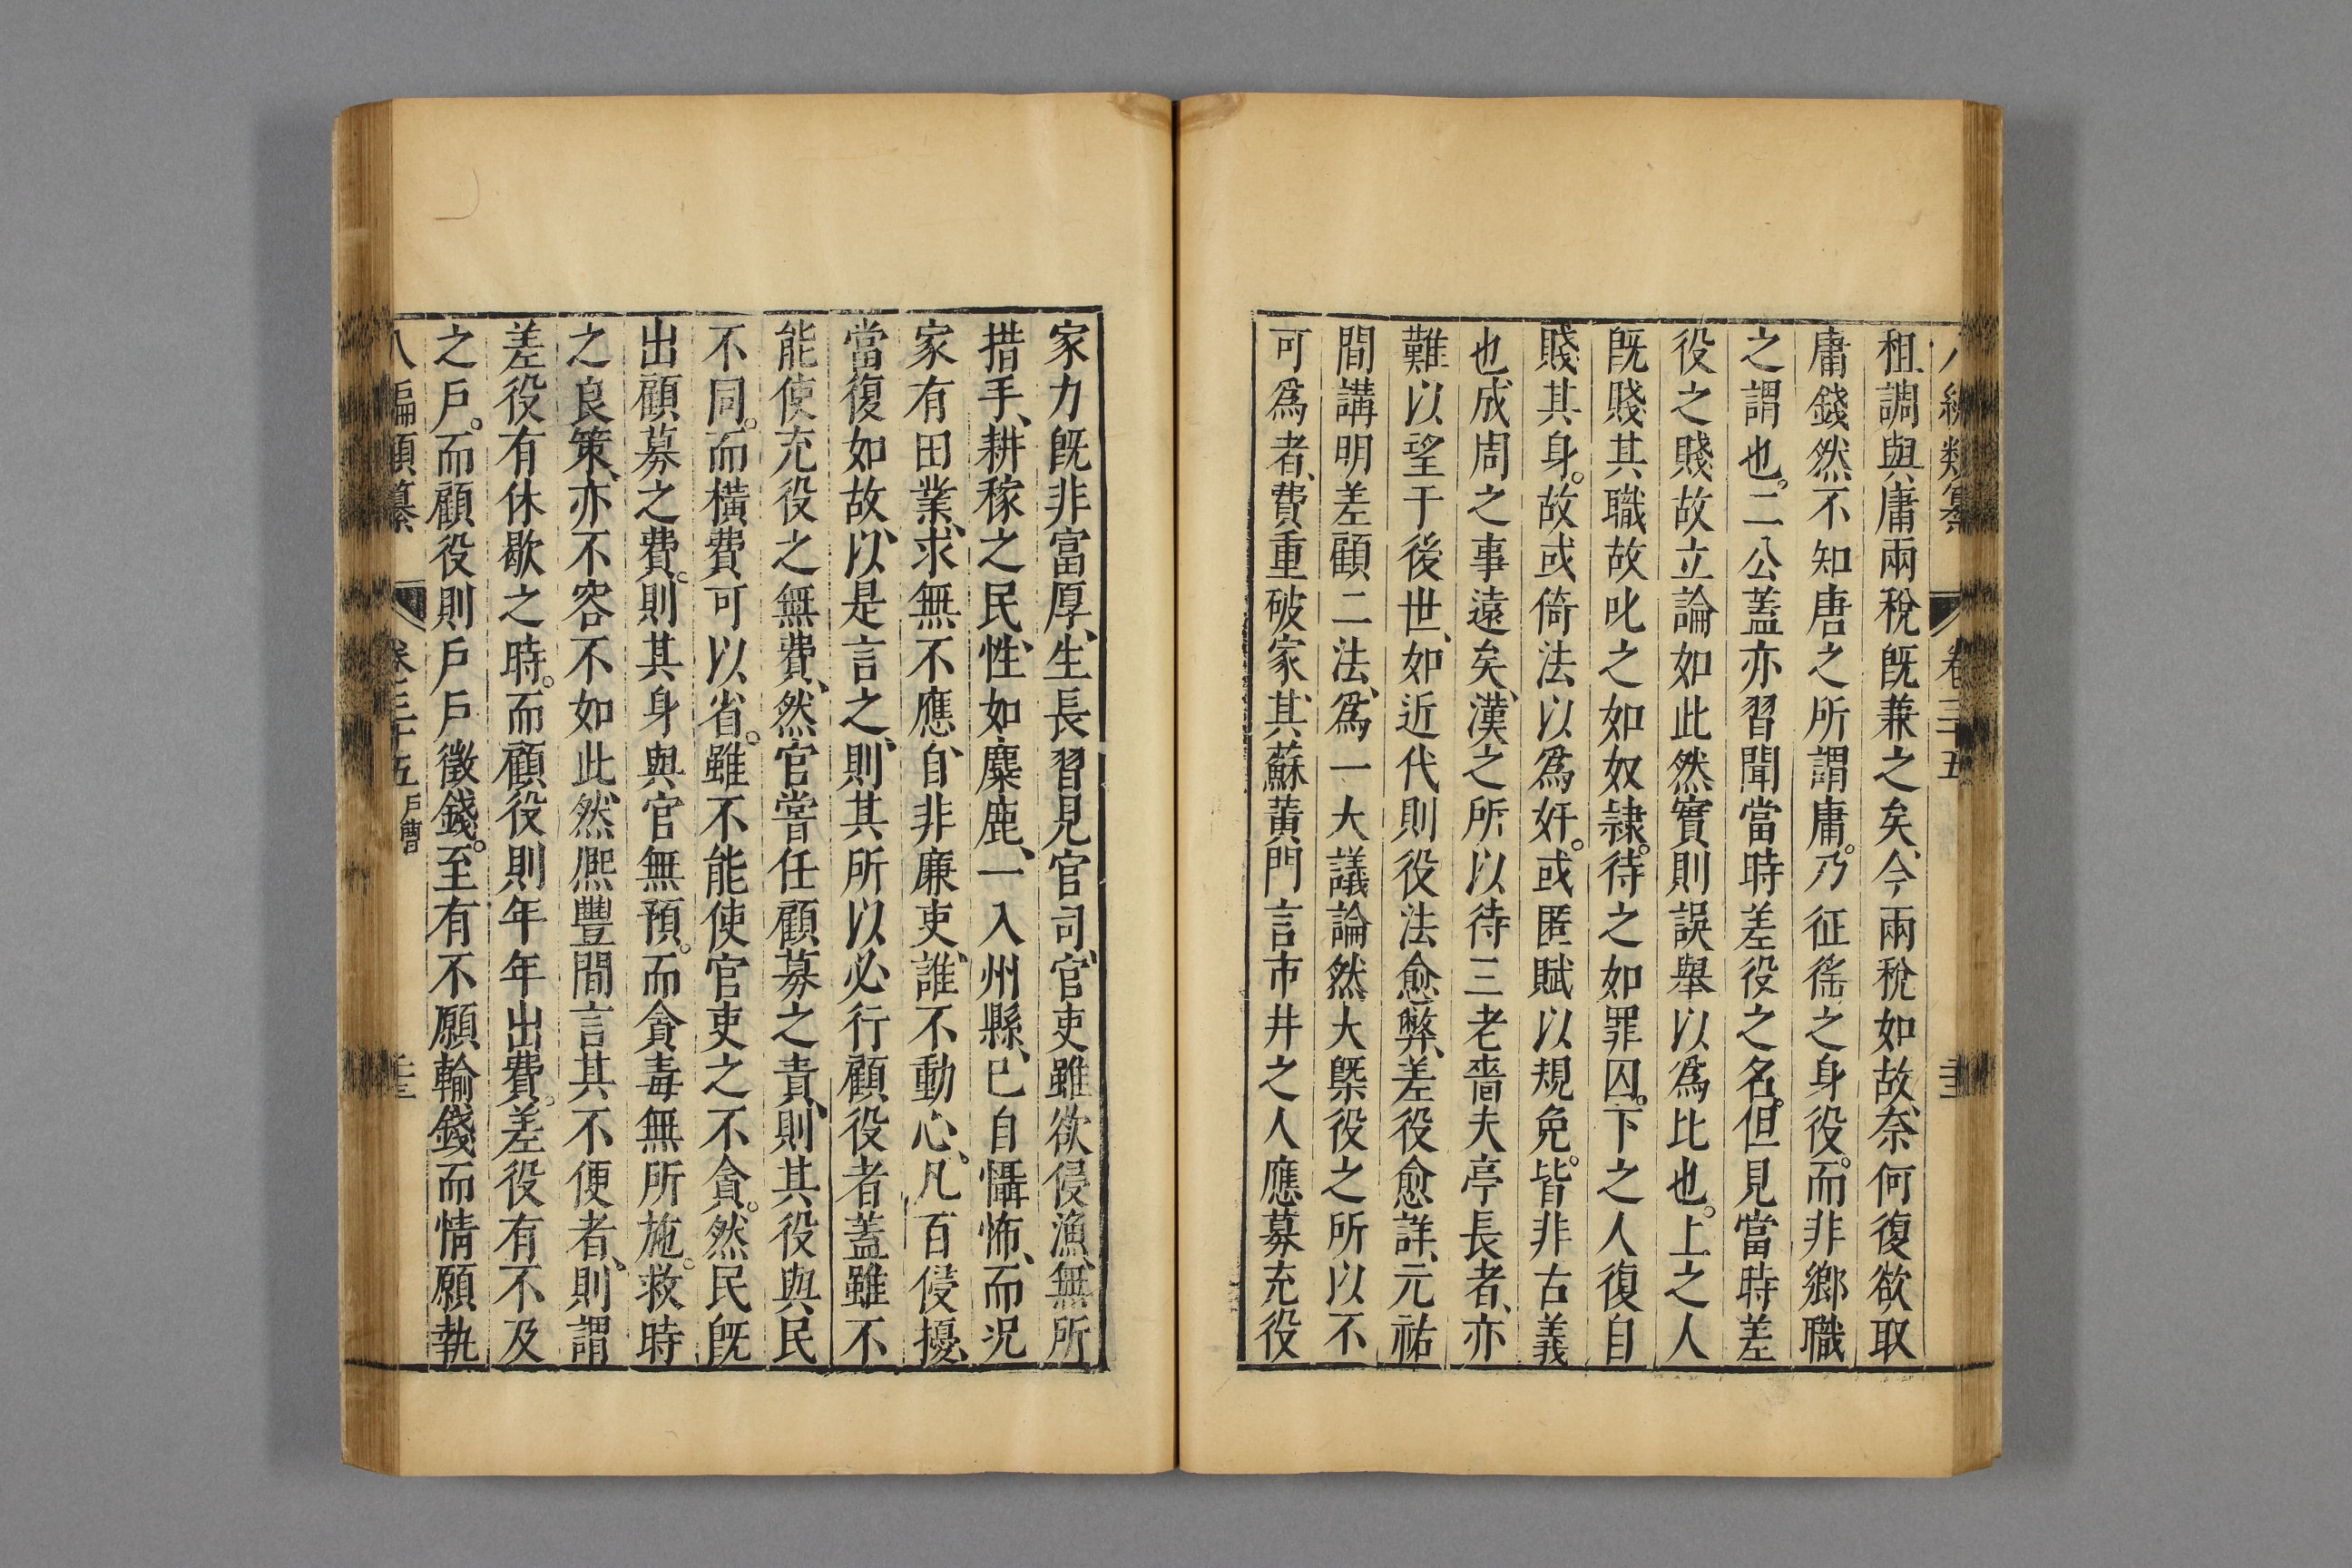 八編類纂 卷三十五
租調與庸兩稅旣兼之矣、今兩稅如故、奈何復欲取
庸錢然不知唐之所謂庸。乃征徭之身役。而非鄉職
之謂也。二公蓋亦習聞當時差役之名。但見當時差
役之賤故立論如此然實則誤舉以爲比也。上之人
旣賤其職故叱之如奴隷。待之如罪囚。下之人復自
賤其身。故或倚法以爲奸。或匿賦以規免。皆非古義
也成周之事遠矣、漢之所以待三老嗇夫亭長者、亦
難以望于後世、如近代則役法愈弊、差役愈詳、元祐
間講明差顧二法、爲一大議論然大槩役之所以不
可爲者、費重破家、其蘇黃門言市井之人應募充役
家力旣非富厚、生長習見官司、官吏雖欲侵漁、無所
措手、耕稼之民、性如麋鹿、一入州縣、已自懾怖、而況
家有田業、求無不應、自非廉吏、誰不動心、凡百侵擾、
當復如故、以是言之、則其所以必行顧役者蓋雖不
能使充役之無費、然官嘗任顧募之責、則其役與民
不同。而橫費可以省。雖不能使官吏之不貪。然民旣
出顧募之費。則其身與官無預。而貪毒無所施。救時
之良策、亦不容不如此、然熈豐間言其不便者、則謂
差役有休歇之時。而顧役則年年出費。差役有不及
之戶。而顧役則戶戶徵錢。至有不願輸錢而情願執
八編類纂 卷三十五 戶曹